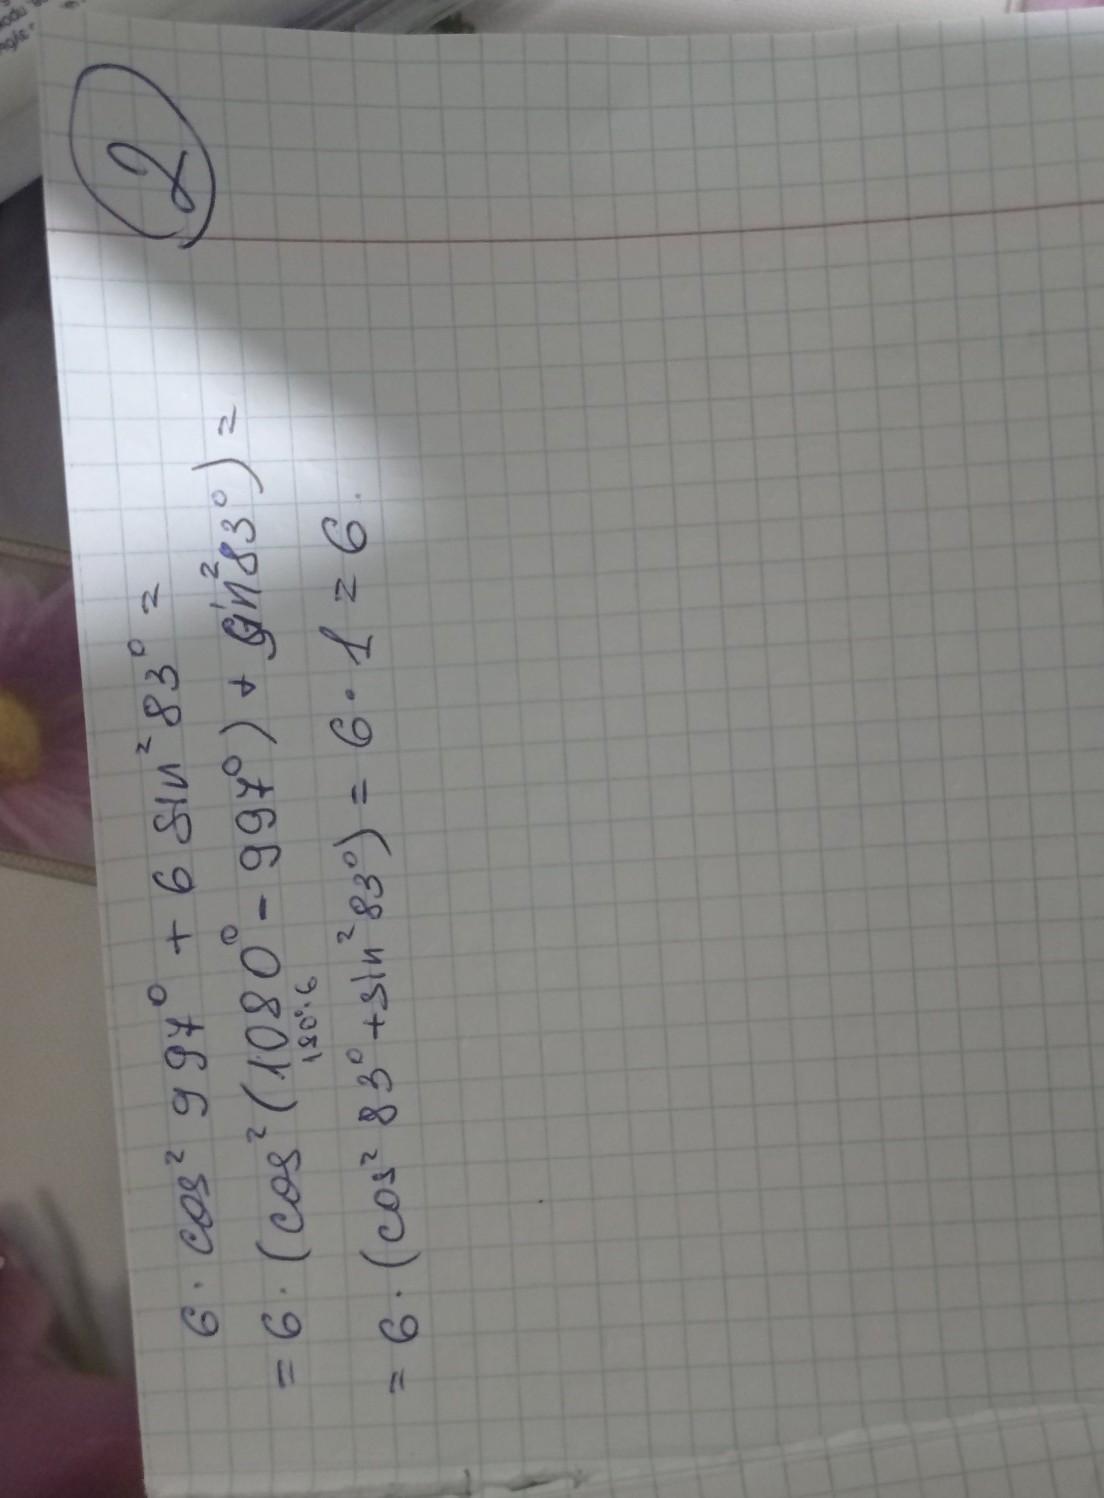 2
6 · cos² 997° + 6 sin² 83° =
= 6 · (cos² (1080° - 997°) + sin² 83°) =
180°·6
= 6 · (cos² 83° + sin² 83°) = 6 · 1 = 6.